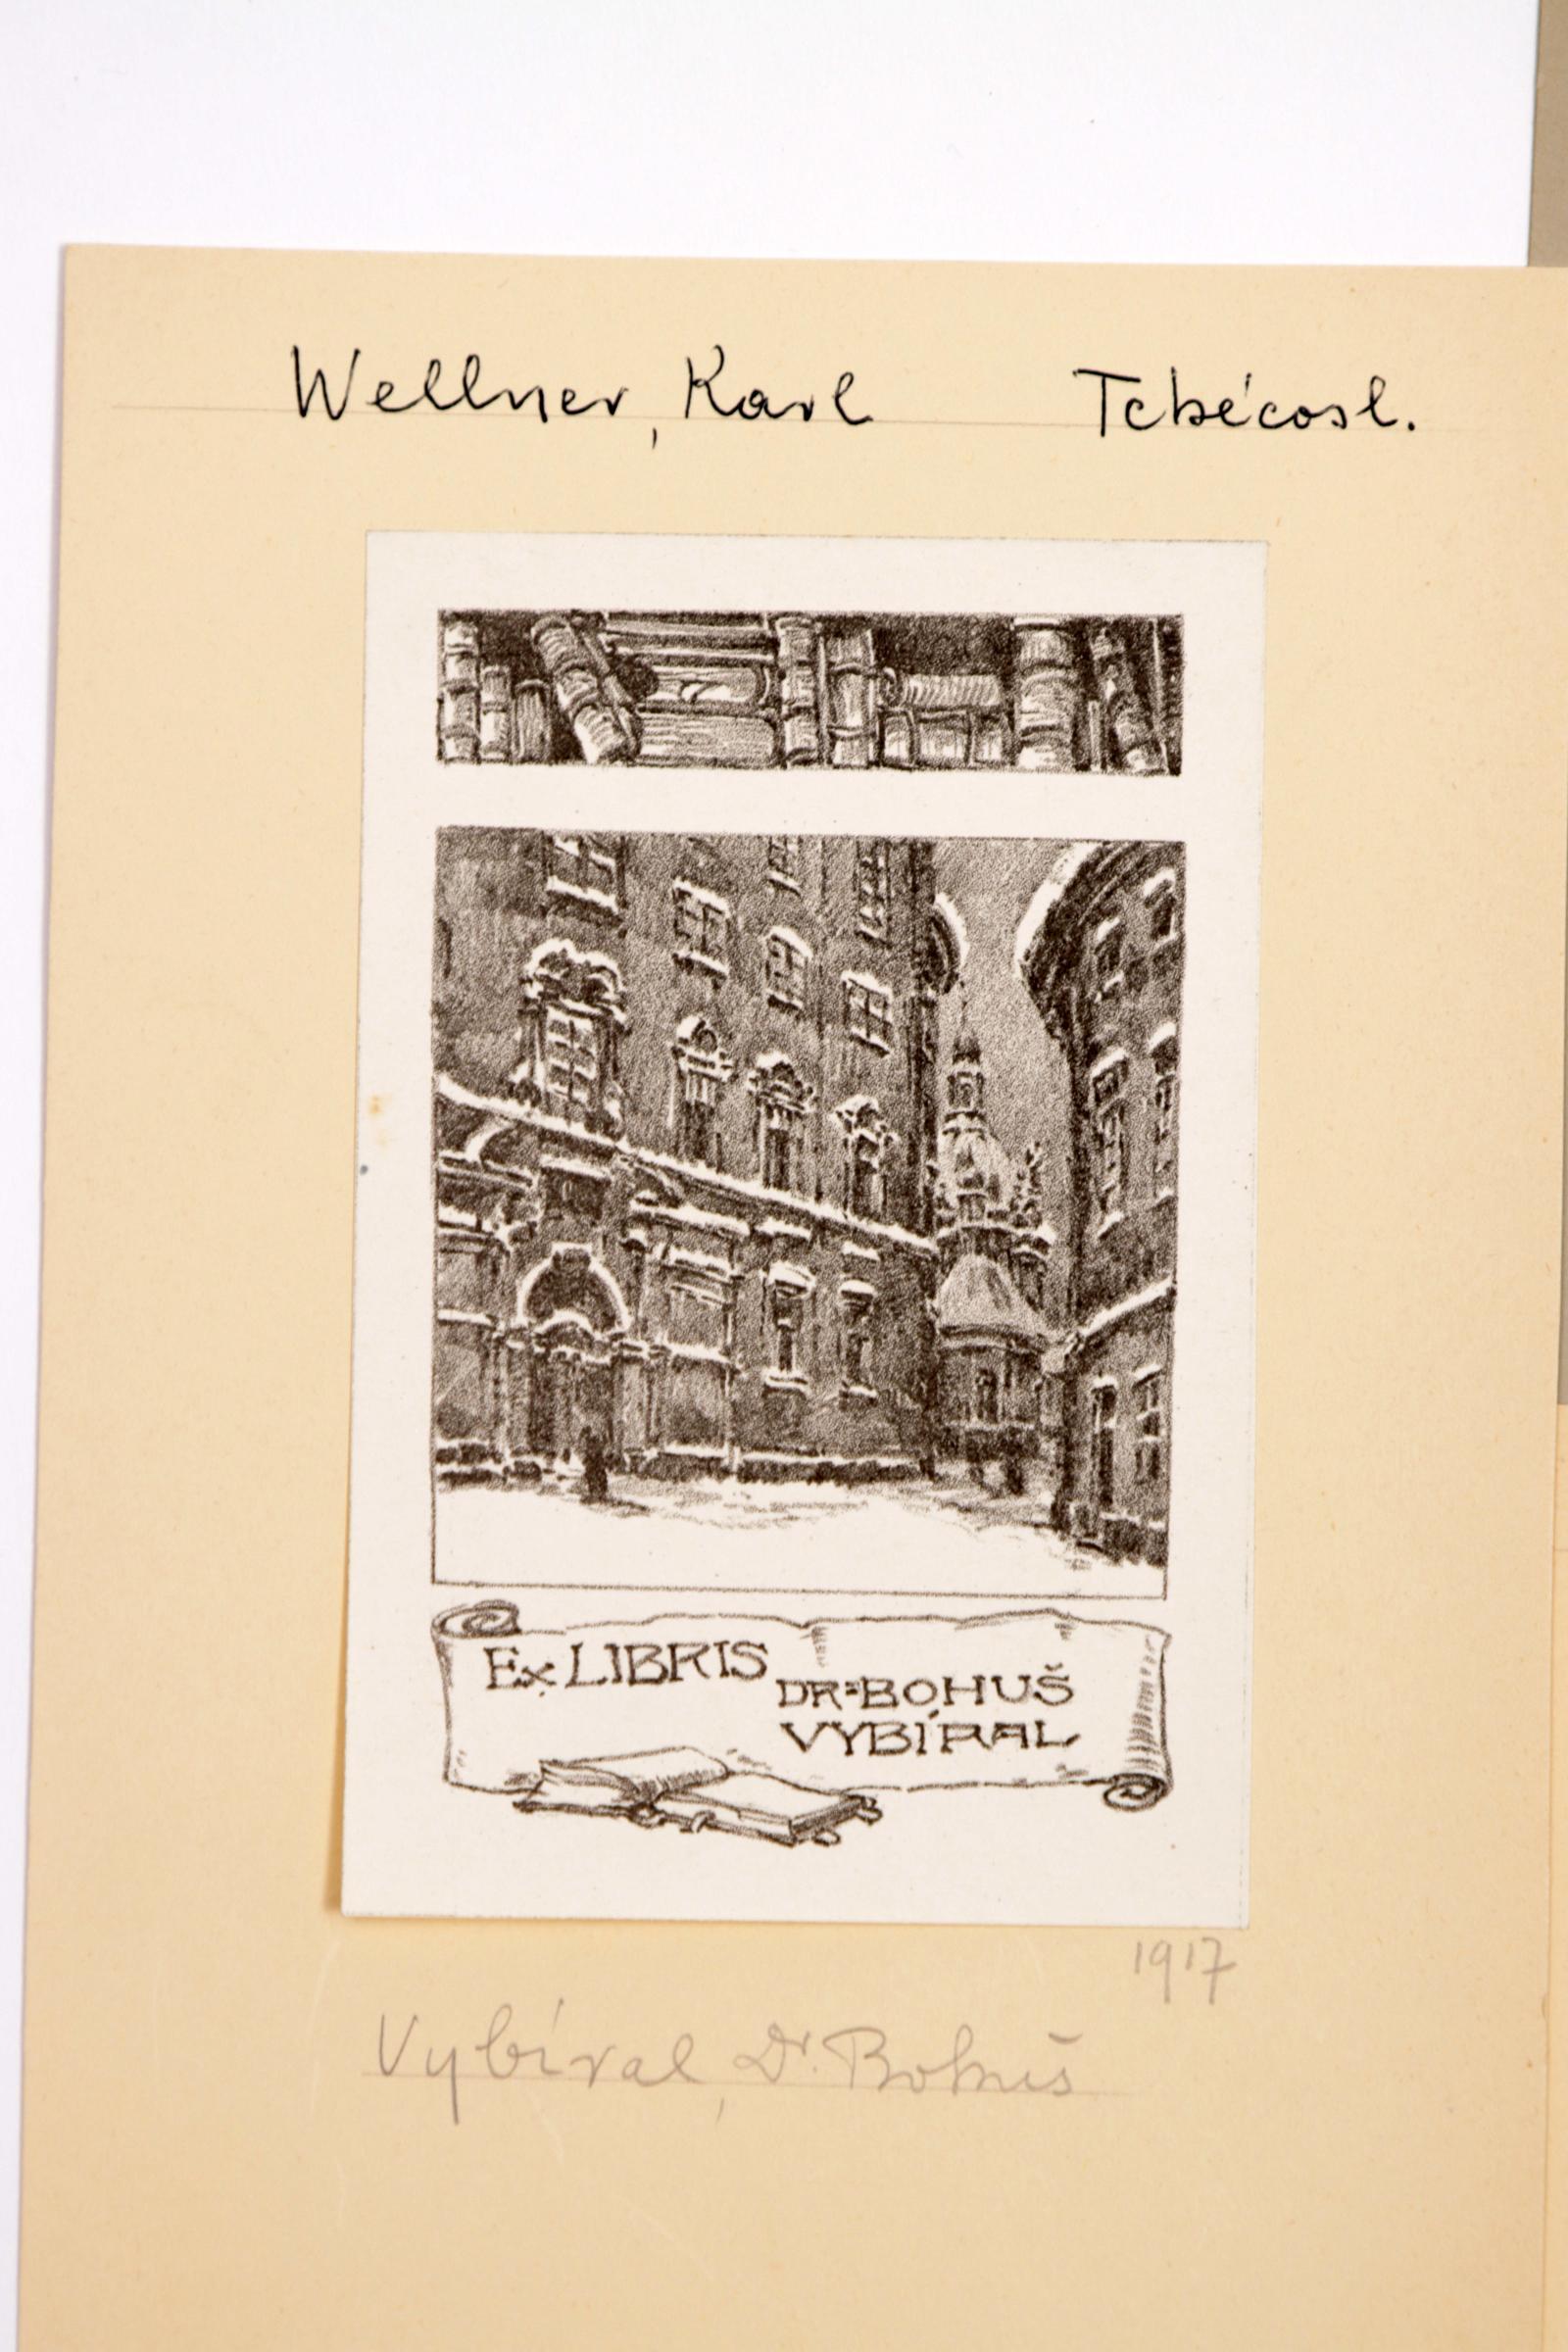 Wellner, Karl Tchécosl.
Ex LIBRIS
DR=BOHUŠ
VYBÍRAL
1917
Vybíral, Dr. Bohuš